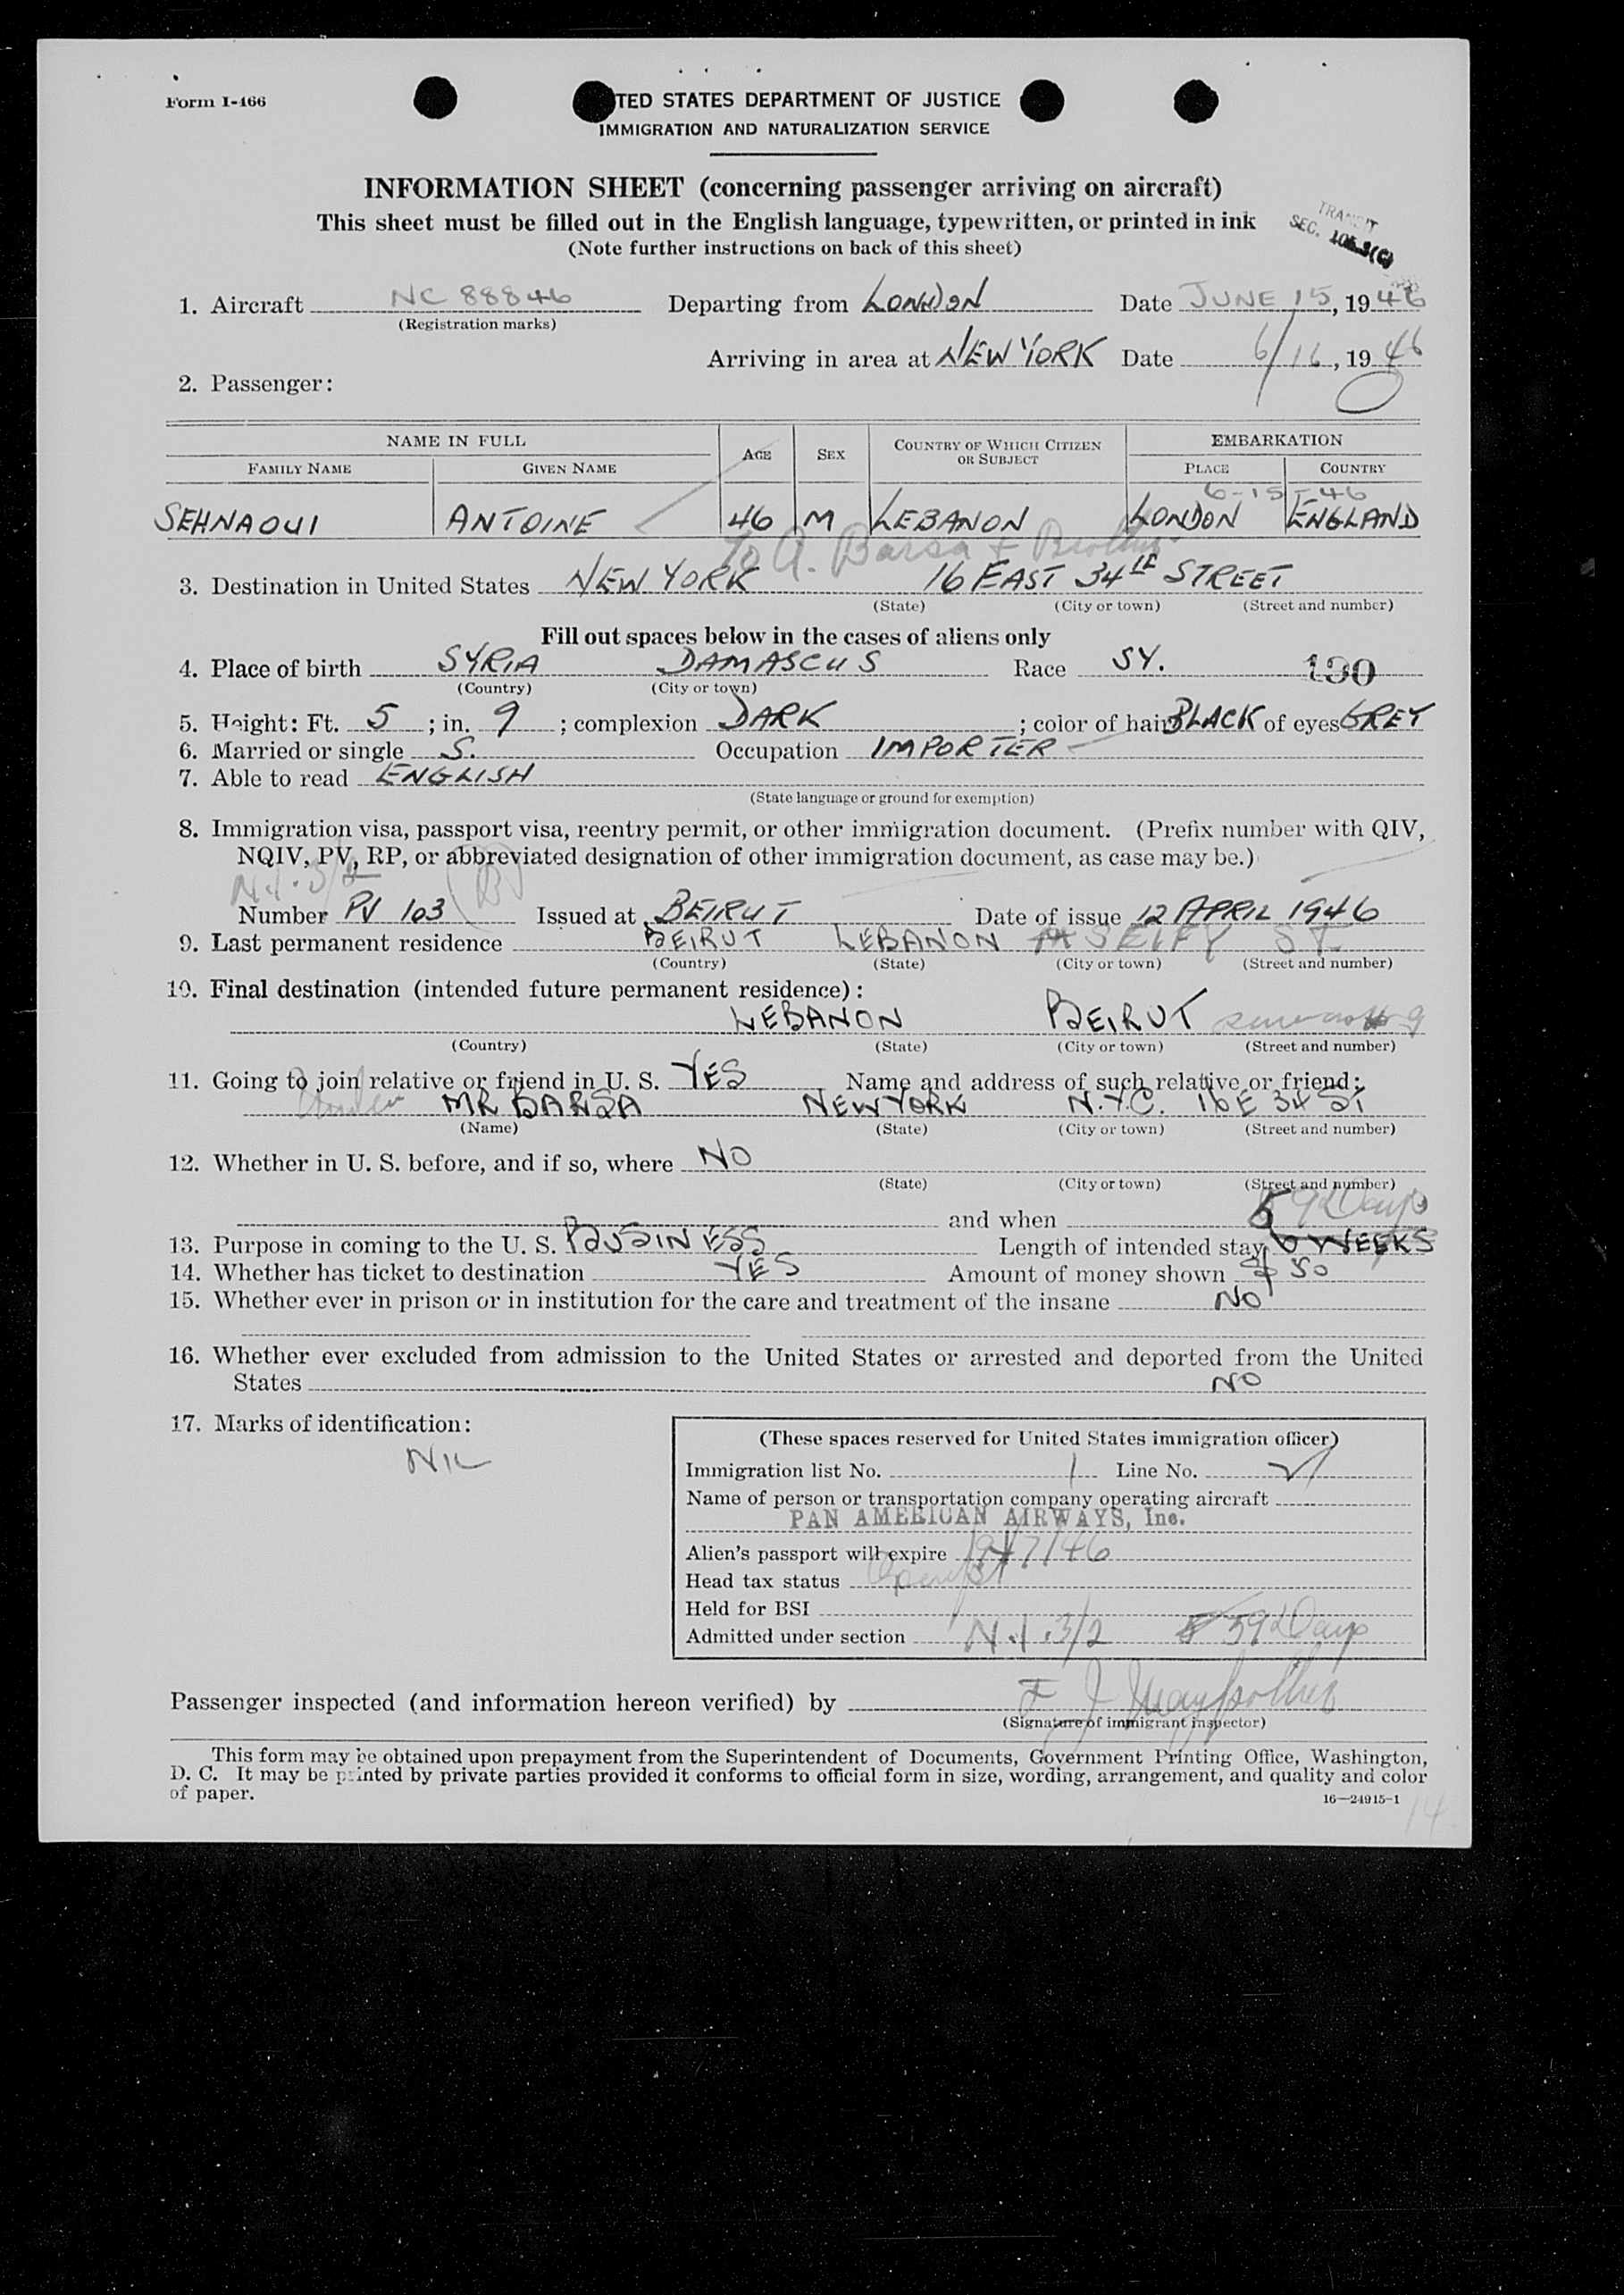 Form I-466
TED STATES DEPARTMENT OF JUSTICE
IMMIGRATION AND NATURALIZATION SERVICE
INFORMATION SHEET (concerning passenger arriving on aircraft)
This sheet must be filled out in the English language, typewritten, or printed in ink
(Note further instructions on back of this sheet)
TRANSIT
SEC.
1. Aircraft NC 88846 Departing from LONDON Date JUNE 15, 1946
(Registration marks)
Arriving in area at NEW YORK Date 6/16, 1946
2. Passenger:
NAME IN FULL AGE SEX COUNTRY OF WHICH CITIZEN OR SUBJECT EMBARKATION
FAMILY NAME GIVEN NAME PLACE COUNTRY
6-15-46
SEHNAOUI ANTOINE 46 M LEBANON LONDON ENGLAND
To A. Barsa + Brothers
3. Destination in United States NEW YORK 16 EAST 34TH STREET
(State) (City or town) (Street and number)
Fill out spaces below in the cases of aliens only
4. Place of birth SYRIA DAMASCUS Race SY. 190
(Country) (City or town)
5. Height: Ft. 5 ; in. 9 ; complexion DARK ; color of hair BLACK of eyes GREY
6. Married or single S. Occupation IMPORTER
7. Able to read ENGLISH
(State language or ground for exemption)
8. Immigration visa, passport visa, reentry permit, or other immigration document. (Prefix number with QIV,
NQIV, PV, RP, or abbreviated designation of other immigration document, as case may be.)
N.I. 3/2 (B)
Number PV 103 Issued at BEIRUT Date of issue 12 APRIL 1946
9. Last permanent residence BEIRUT LEBANON SEIFY ST.
(Country) (State) (City or town) (Street and number)
10. Final destination (intended future permanent residence):
LEBANON BEIRUT same as # 9
(Country) (State) (City or town) (Street and number)
11. Going to join relative or friend in U. S. YES Name and address of such relative or friend:
MR BARSA NEW YORK N.Y.C. 16 E 34 ST
(Name) (State) (City or town) (Street and number)
12. Whether in U. S. before, and if so, where NO
(State) (City or town) (Street and number)
and when
59 Days
13. Purpose in coming to the U. S. BUSINESS Length of intended stay 6 WEEKS
14. Whether has ticket to destination YES Amount of money shown $ 50
15. Whether ever in prison or in institution for the care and treatment of the insane NO
16. Whether ever excluded from admission to the United States or arrested and deported from the United
States NO
17. Marks of identification:
NIL
(These spaces reserved for United States immigration officer)
Immigration list No. 1 Line No.
Name of person or transportation company operating aircraft
PAN AMERICAN AIRWAYS, Inc.
Alien's passport will expire
Head tax status
Held for BSI
Admitted under section N.I. 3/2 59 Days
Passenger inspected (and information hereon verified) by
(Signature of immigrant inspector)
This form may be obtained upon prepayment from the Superintendent of Documents, Government Printing Office, Washington,
D. C. It may be printed by private parties provided it conforms to official form in size, wording, arrangement, and quality and color
of paper.
16—24915-1
14